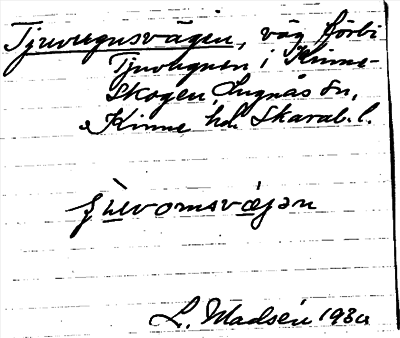 Tjuvugnsvägen, väg förbi
Tjuvugnen i Kinne-
skogen, Lugnås sn,
Kinne hd. Skarab. l.
L. Madsén 1930